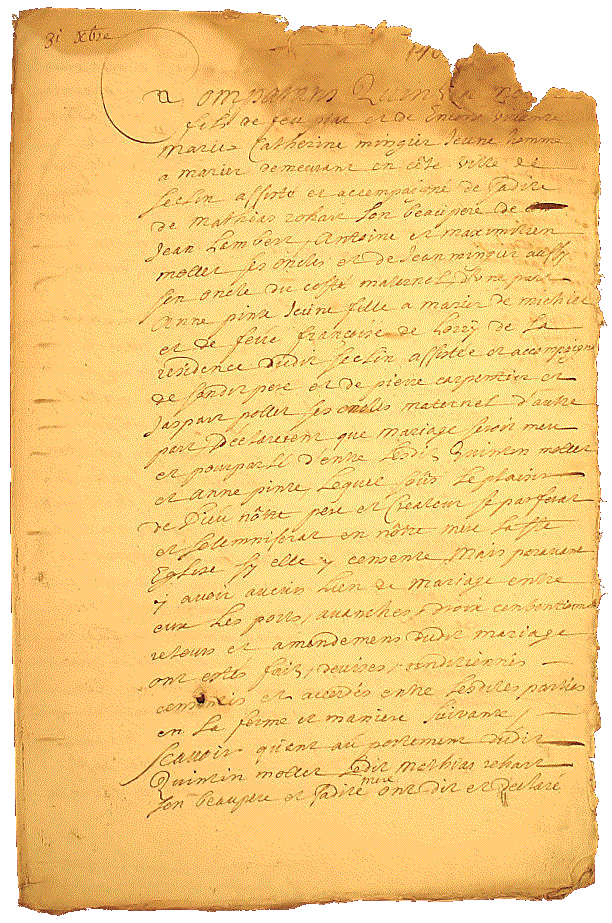 31 Xbre
Comparans Quintin
fils de feu piat et de encore vivante
Marie Catherine mingier Jeune homme
a marier demeurant en cete ville de
Seclin assisté et accompaigné de sadite
de Mathias rohart son beaupere de
Jean Lambert, Antoine et maximilien
mollet ses oncles et de Jean mingier aussy
son oncle du costé maternel d'une part
Anne pinte Jeune fille a marier de michiel
et de feue françoise de Lorry de La
residence dudit Seclin assistée et accompaigné
de sondit pere et de pierre carpentier et
Jaspart pollet ses oncles maternel d'autre
part Declarerent que mariage seroit meu
et pourparlé d'entre Lesdis Quintin mollet
et Anne pinte Lequel soûs Le plaisir
de Dieu nôtre pere et Createur se parferat
et solemniserat en nôtre mere La Ste
Eglise sy elle y consente Mais paravant
y avoir aucun Lien de mariage entre
eux Les ports, avanches, droix conventionnels
retours et amendemens dudit mariage
ont estés fait, devises, conditionnés
convenus et accordés entre Lesdites parties
en La forme et maniere suivante,
scavoir quant au portement dudit
Quintin mollet Ledit mathias rohart
son beaupere et sadite mere ont dit et declaré